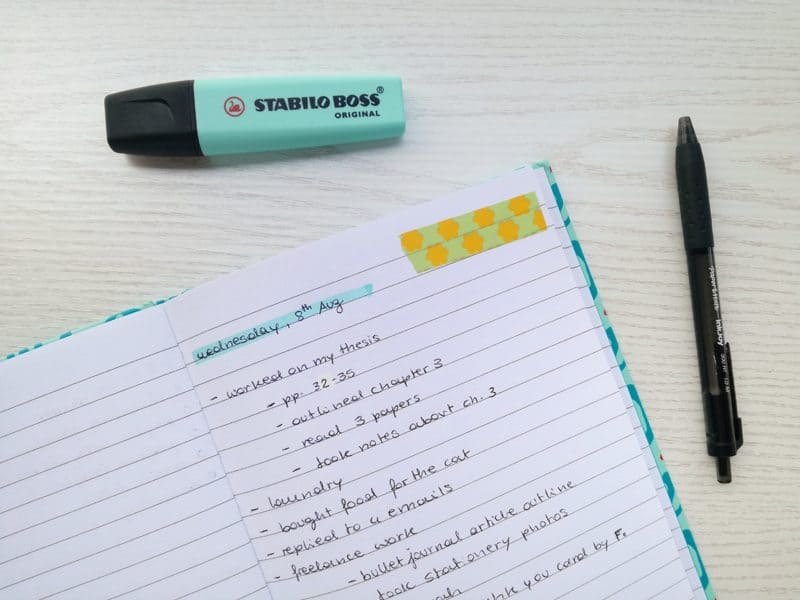 STABILO BOSS®
ORIGINAL
wednesday, 8th Aug
- worked on my thesis
- pp. 32-35
- outlined chapter 3
- read 3 papers
- took notes about ch. 3
- laundry
- bought food for the cat
- replied to 4 emails
- freelance work
- bullet journal article outline
took stationery photos
you card by F.
PaperMate InkJoy